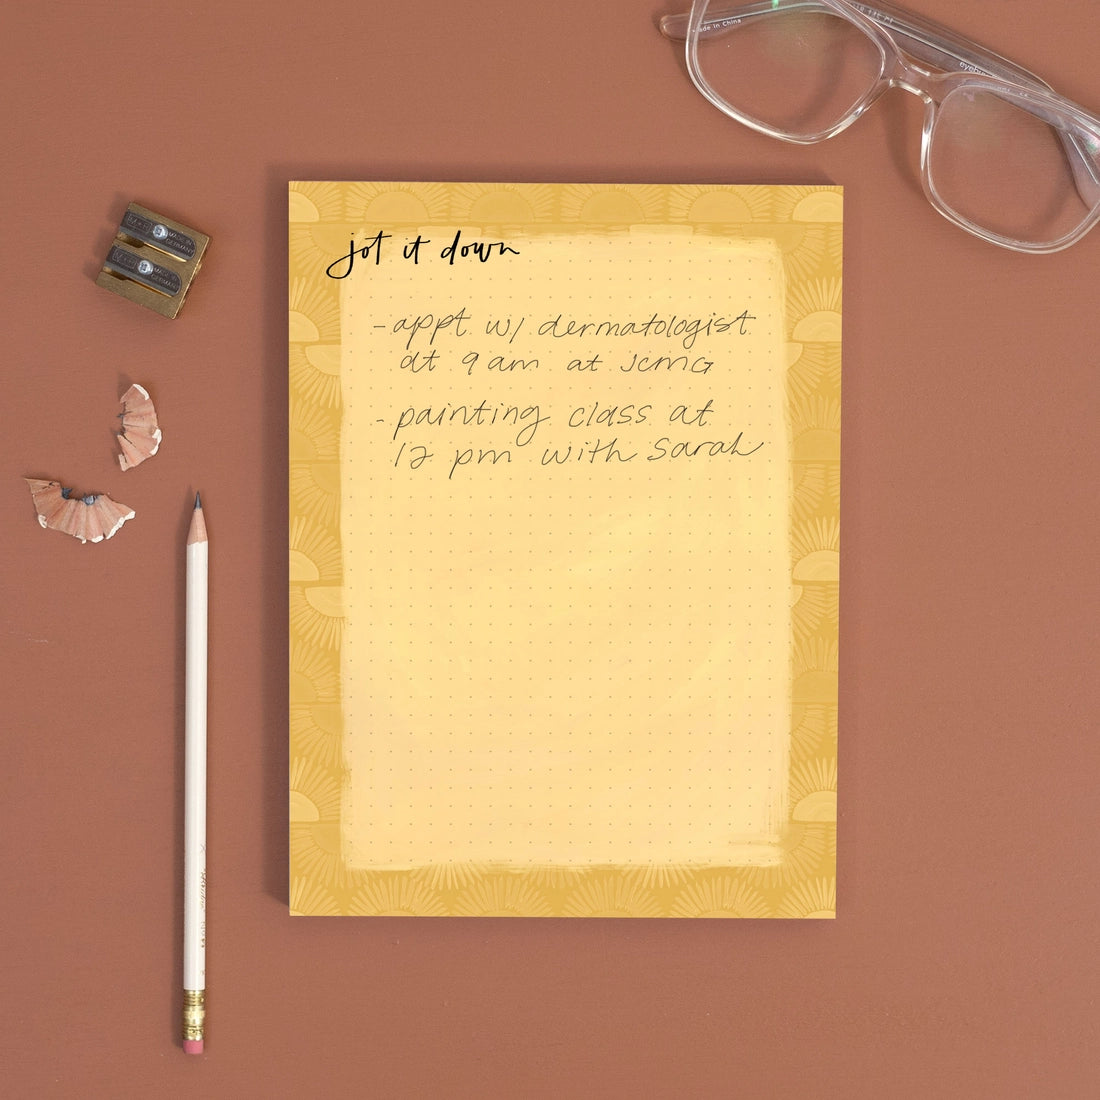 jot it down
- appt w/ dermatologist
at 9am at JCMG
- painting class at
12 pm with Sarah
Made in China
MADE IN
GERMANY
MADE IN
GERMANY